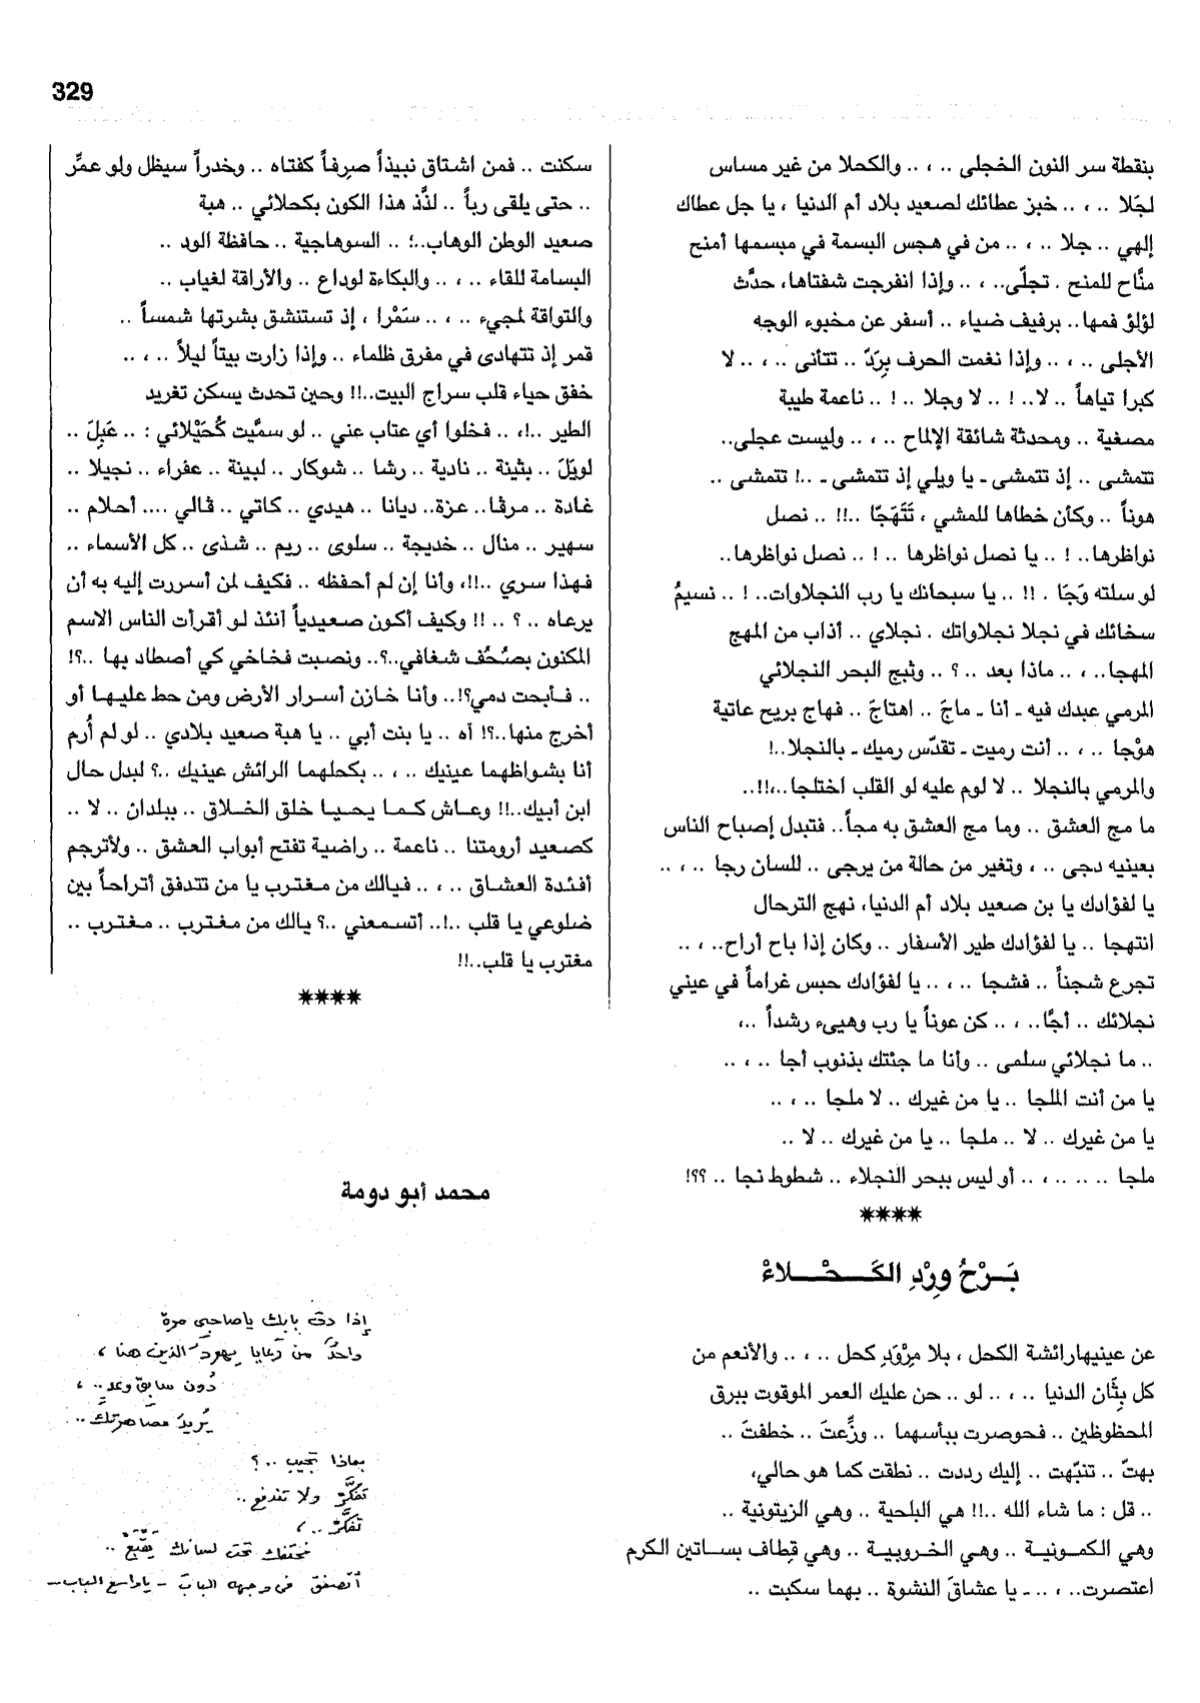 329
بنقطة سر النون الخجلى .. ، .. والكحلا من غير مساس
لجَلا .. ، .. خبز عطائك لصعيد بلاد أم الدنيا ، يا جل عطاك
إلهي .. جلا .. ، .. من في هجس البسمة في مبسمها أمنح
منَّاح للمنح . تجلّى.. ، .. وإذا انفرجت شفتاها، حدَّث
لؤلؤ فمها.. برفيف ضياء .. أسفر عن مخبوء الوجه
الأجلى .. ، .. وإذا نغمت الحرف بِرَدّ .. تتأنى .. ، .. لا
كبرا تياهاً .. لا.. ! .. لا وجلا .. ! .. ناعمة طيبة
مصغية .. ومحدثة شائقة الإلماح .. ، .. وليست عجلى..
تتمشى .. إذ تتمشى ـ يا ويلي إذ تتمشى ـ ..! تتمشى ..
هوناً .. وكأن خطاها للمشي ، تَتَهَجّا ..!! .. نصل
نواظرها.. ! .. يا نصل نواظرها .. ! .. نصل نواظرها..
لو سلته وَجَا . !! .. يا سبحانك يا رب النجلاوات.. ! .. نسيمُ
سخائك في نجلا نجلاواتك . نجلاي .. أذاب من المهج
المهجا.. ، .. ماذا بعد .. ؟ .. وثبج البحر النجلائي
المرمي عبدك فيه ـ أنا ـ ماجَ .. اهتاجَ .. فهاج بريح عاتية
هوْجا .. ، .. أنت رميت ـ تقدّس رميك ـ بالنجلا..!
والمرمي بالنجلا .. لا لوم عليه لو القلب اختلجا..،!!..
ما مج العشق .. وما مج العشق به مجاً.. فتبدل إصباح الناس
بعينيه دجى .. ، وتغير من حالة من يرجى .. للسان رجا .. ، ..
يا لفؤادك يا بن صعيد بلاد أم الدنيا، نهج الترحال
انتهجا .. يا لفؤادك طير الأسفار .. وكان إذا باح أراح.. ، ..
تجرع شجناً .. فشجا .. ، .. يا لفؤادك حبس غراماً في عيني
نجلائك .. أجَّا.. ، .. كن عوناً يا رب وهيىء رشداً ..،
.. ما نجلائي سلمى .. وأنا ما جئتك بذنوب أجا .. ، ..
يا من أنت الملجا .. يا من غيرك .. لا ملجا .. ، ..
يا من غيرك .. لا .. ملجا .. يا من غيرك .. لا ..
ملجا .. .. .. ، .. أو ليس ببحر النجلاء .. شطوط نجا .. ؟؟!
****
بَـرْحُ وِرْدِ الكَـحْـلاءْ
عن عينيهارائشة الكحل ، بلا مِرْوَدِ كحل .. ، .. والأنعم من
كل بِثَان الدنيا .. ، .. لو .. حن عليك العمر الموقوت ببرق
المحظوظين .. فحوصرت ببأسهما .. وزِّعتَ .. خطفتَ ..
بهتّ .. تنبّهت .. إليك رددت .. نطقت كما هو حالي،
.. قل : ما شاء الله ..!! هي البلحية .. وهي الزيتونية ..
وهي الكمـونيـة .. وهـي الخـروبيـة .. وهي قِطاف بسـاتين الكرم
اعتصرت.. ، .. ـ يا عشاقَ النشوة .. بهما سكبت ..
سكنت .. فمن اشتاق نبيذاً صِرفاً كفتاه .. وخدراً سيظل ولو عمِّر
.. حتى يلقى رباً .. لذَّذ هذا الكون بكحلائي .. هبة
صعيد الوطن الوهاب..؛ .. السوهاجية .. حافظة الود ..
البسامة للقاء .. ، .. والبكاءة لوداع .. والأراقة لغياب ..
والتواقة لمجيء .. ، .. سَمْرا ، إذ تستنشق بشرتها شمساً ..
قمر إذ تتهادى في مفرق ظلماء .. وإذا زارت بيتاً ليلاً .. ، ..
خفق حياء قلب سراج البيت..!! وحين تحدث يسكن تغريد
الطير ..!، .. فخلوا أي عتاب عني .. لو سميَّت كُحَيْلائي : .. عَبِلَ ..
لوِيَلَ .. بثينة .. نادية .. رشا .. شوكار .. لبينة .. عفراء .. نجيلا ..
غادة .. مرڤا.. عزة.. ديانا .. هيدي .. كاتي .. ڤالي .... أحلام ..
سهير .. منال .. خديجة .. سلوى .. ريم .. شذى .. كل الأسماء ..
فهذا سري ..!!، وأنا إن لم أحفظه .. فكيف لمن أسررت إليه به أن
يرعاه .. ؟ .. !! وكيف أكون صعيدياً آنئذ لو أقرأت الناس الاسم
المكنون بصُحُف شغافي..؟.. ونصبت فخاخي كي أصطاد بها ..؟!
.. فـأبحت دمي؟!.. وأنا خازن أسـرار الأرض ومن حط عليهـا أو
أخرج منها..؟! آه .. يا بنت أبي .. يا هبة صعيد بلادي .. لو لم أُرم
أنا بشواظهما عينيك .. ، .. بكحلهما الرائش عينيك ..؟ لبدل حال
ابن أبيك..!! وعـاش كـمـا يحـيـا خلق الخـلاق .. ببلدان .. لا ..
كصعيد أرومتنا .. ناعمة .. راضية تفتح أبواب العشق .. ولأترجم
أفئـدة العشـاق .. ، .. فيالك من مغترب يا من تتدفق أتراحاً بين
ضلوعي يا قلب ..!.. أتسـمعني ..؟ يالك من مغتـرب .. مـغتـرب ..
مغترب يا قلب..!!
****
محمد أبو دومة
إذا دق بابك ياصاحبي مرة
واحدٌ من رعايا يهودَ الذين هنا ،
دُون سابق وعدٍ.. ،
يُريدُ مصاهرتك ..
بماذا تجيب ..؟
تفكَّرْ ولا تندفع ..
تفكَّرْ .. ،
فحتفك تحت لسانك يَقْبَعُ ..
أتصفق في وجهه الباب - ياواسع الباب -